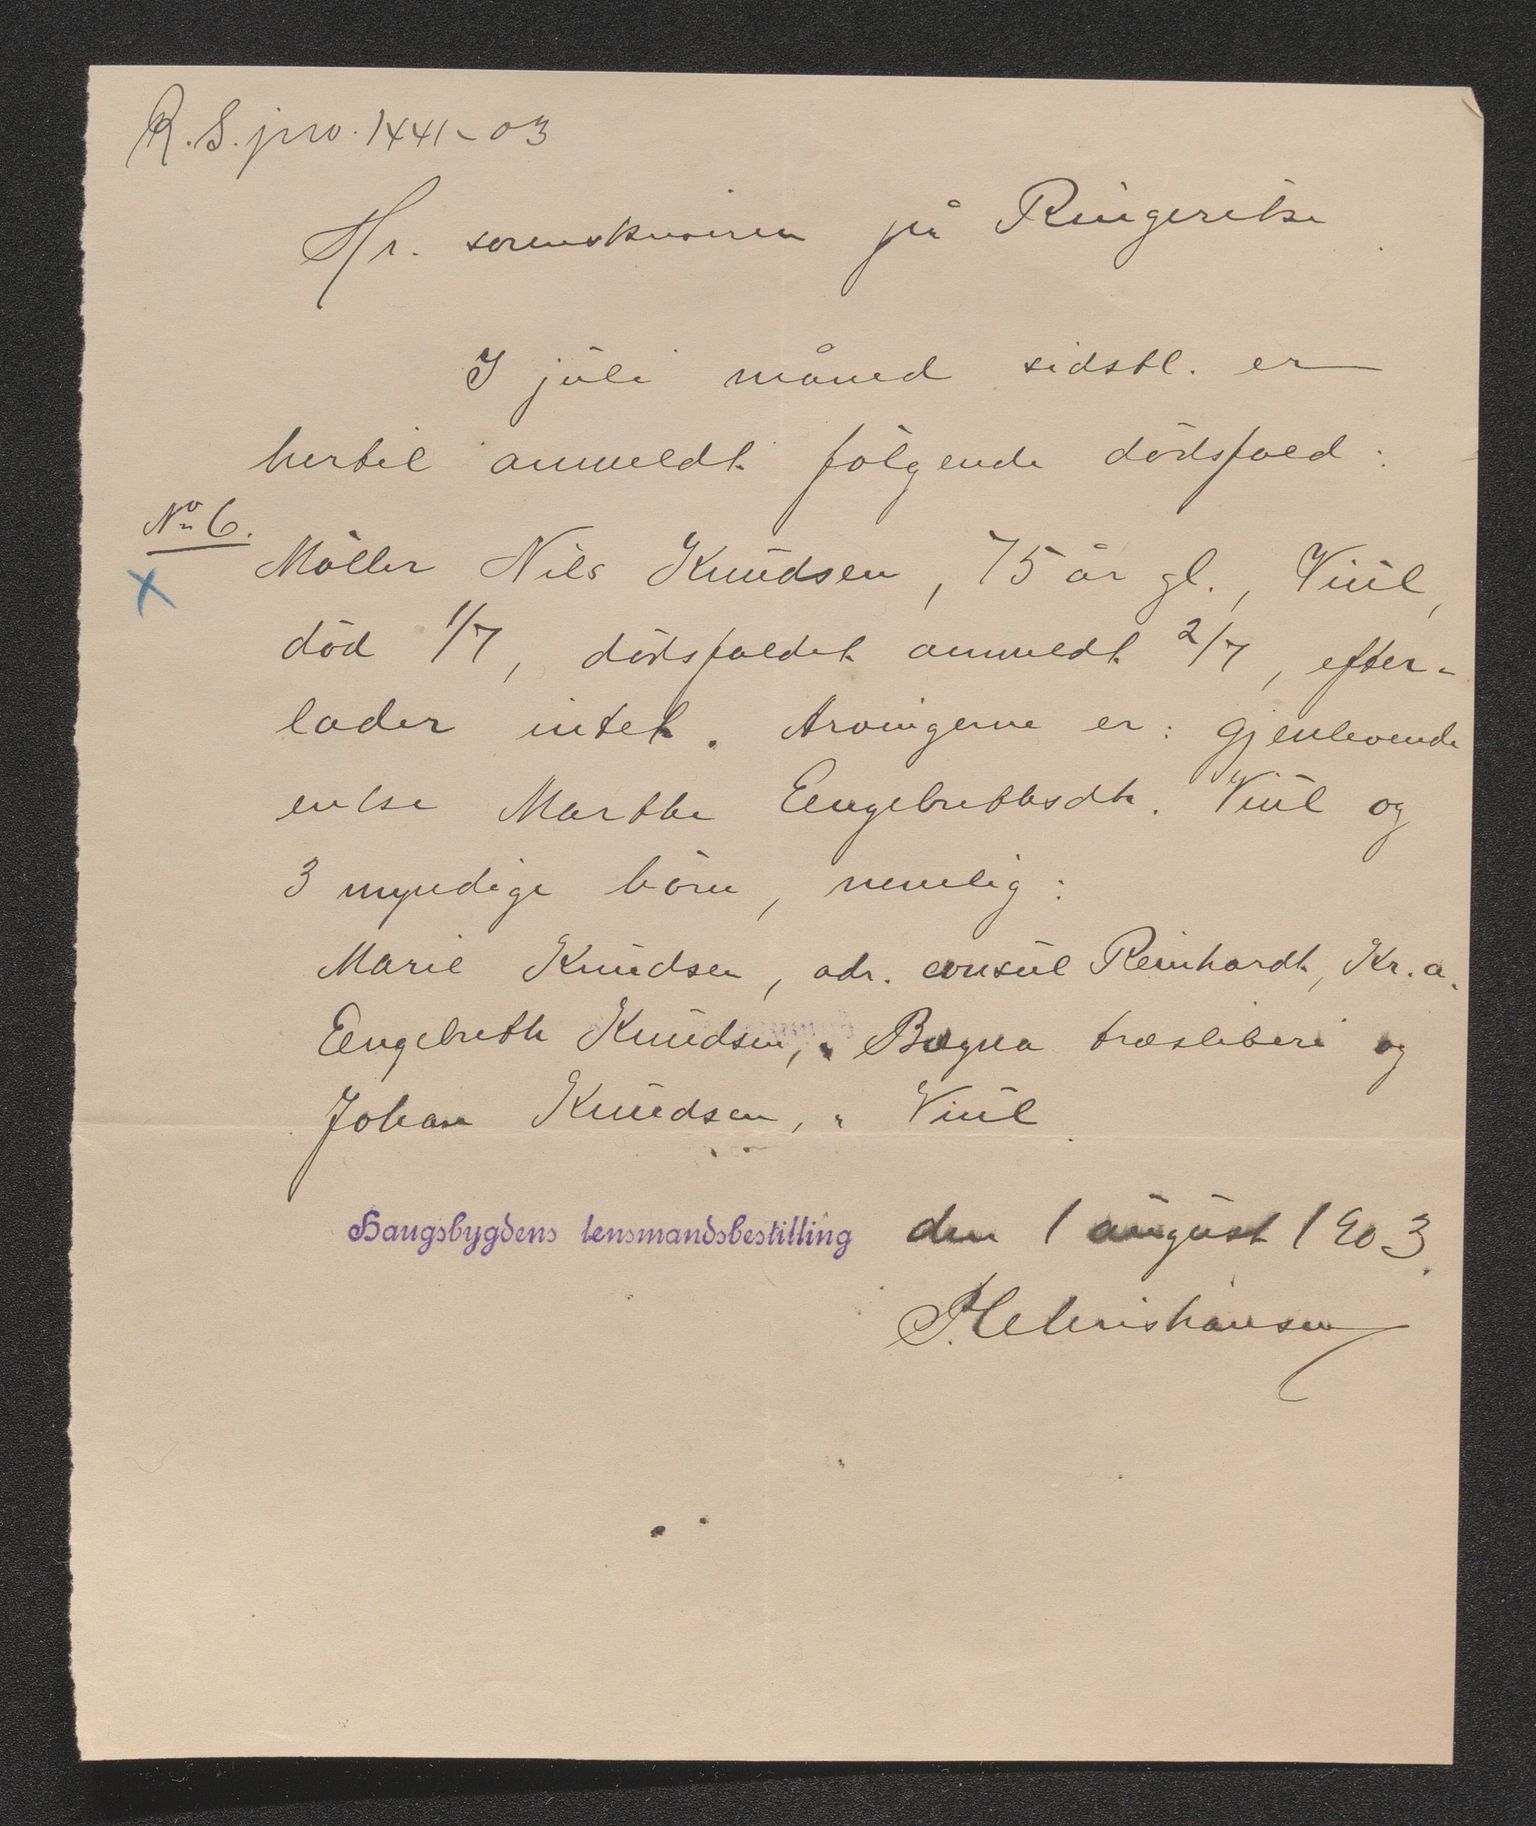 R. S. jno. 1441-03
Hr. sorenskriveren på Ringerike
I juli måned sidstl. er
hertil anmeldt følgende dødsfald:
No 6.
Møller Nils Knudsen, 75 år gl., Viul,
død 1/7, dødsfaldet anmeldt 2/7, efter-
lader intet. Arvingerne er: gjenlevende
enke Marthe Engebrettsdtr. Viul og
3 myndige børn, nemlig:
Marie Knudsen, adr. consul Reinhardt, Kr.a.
Engebreth Knudsen, " Bægna træsliberi og
Johan Knudsen, " Viul
Haugsbygdens lensmandsbestilling den 1 august 1903.